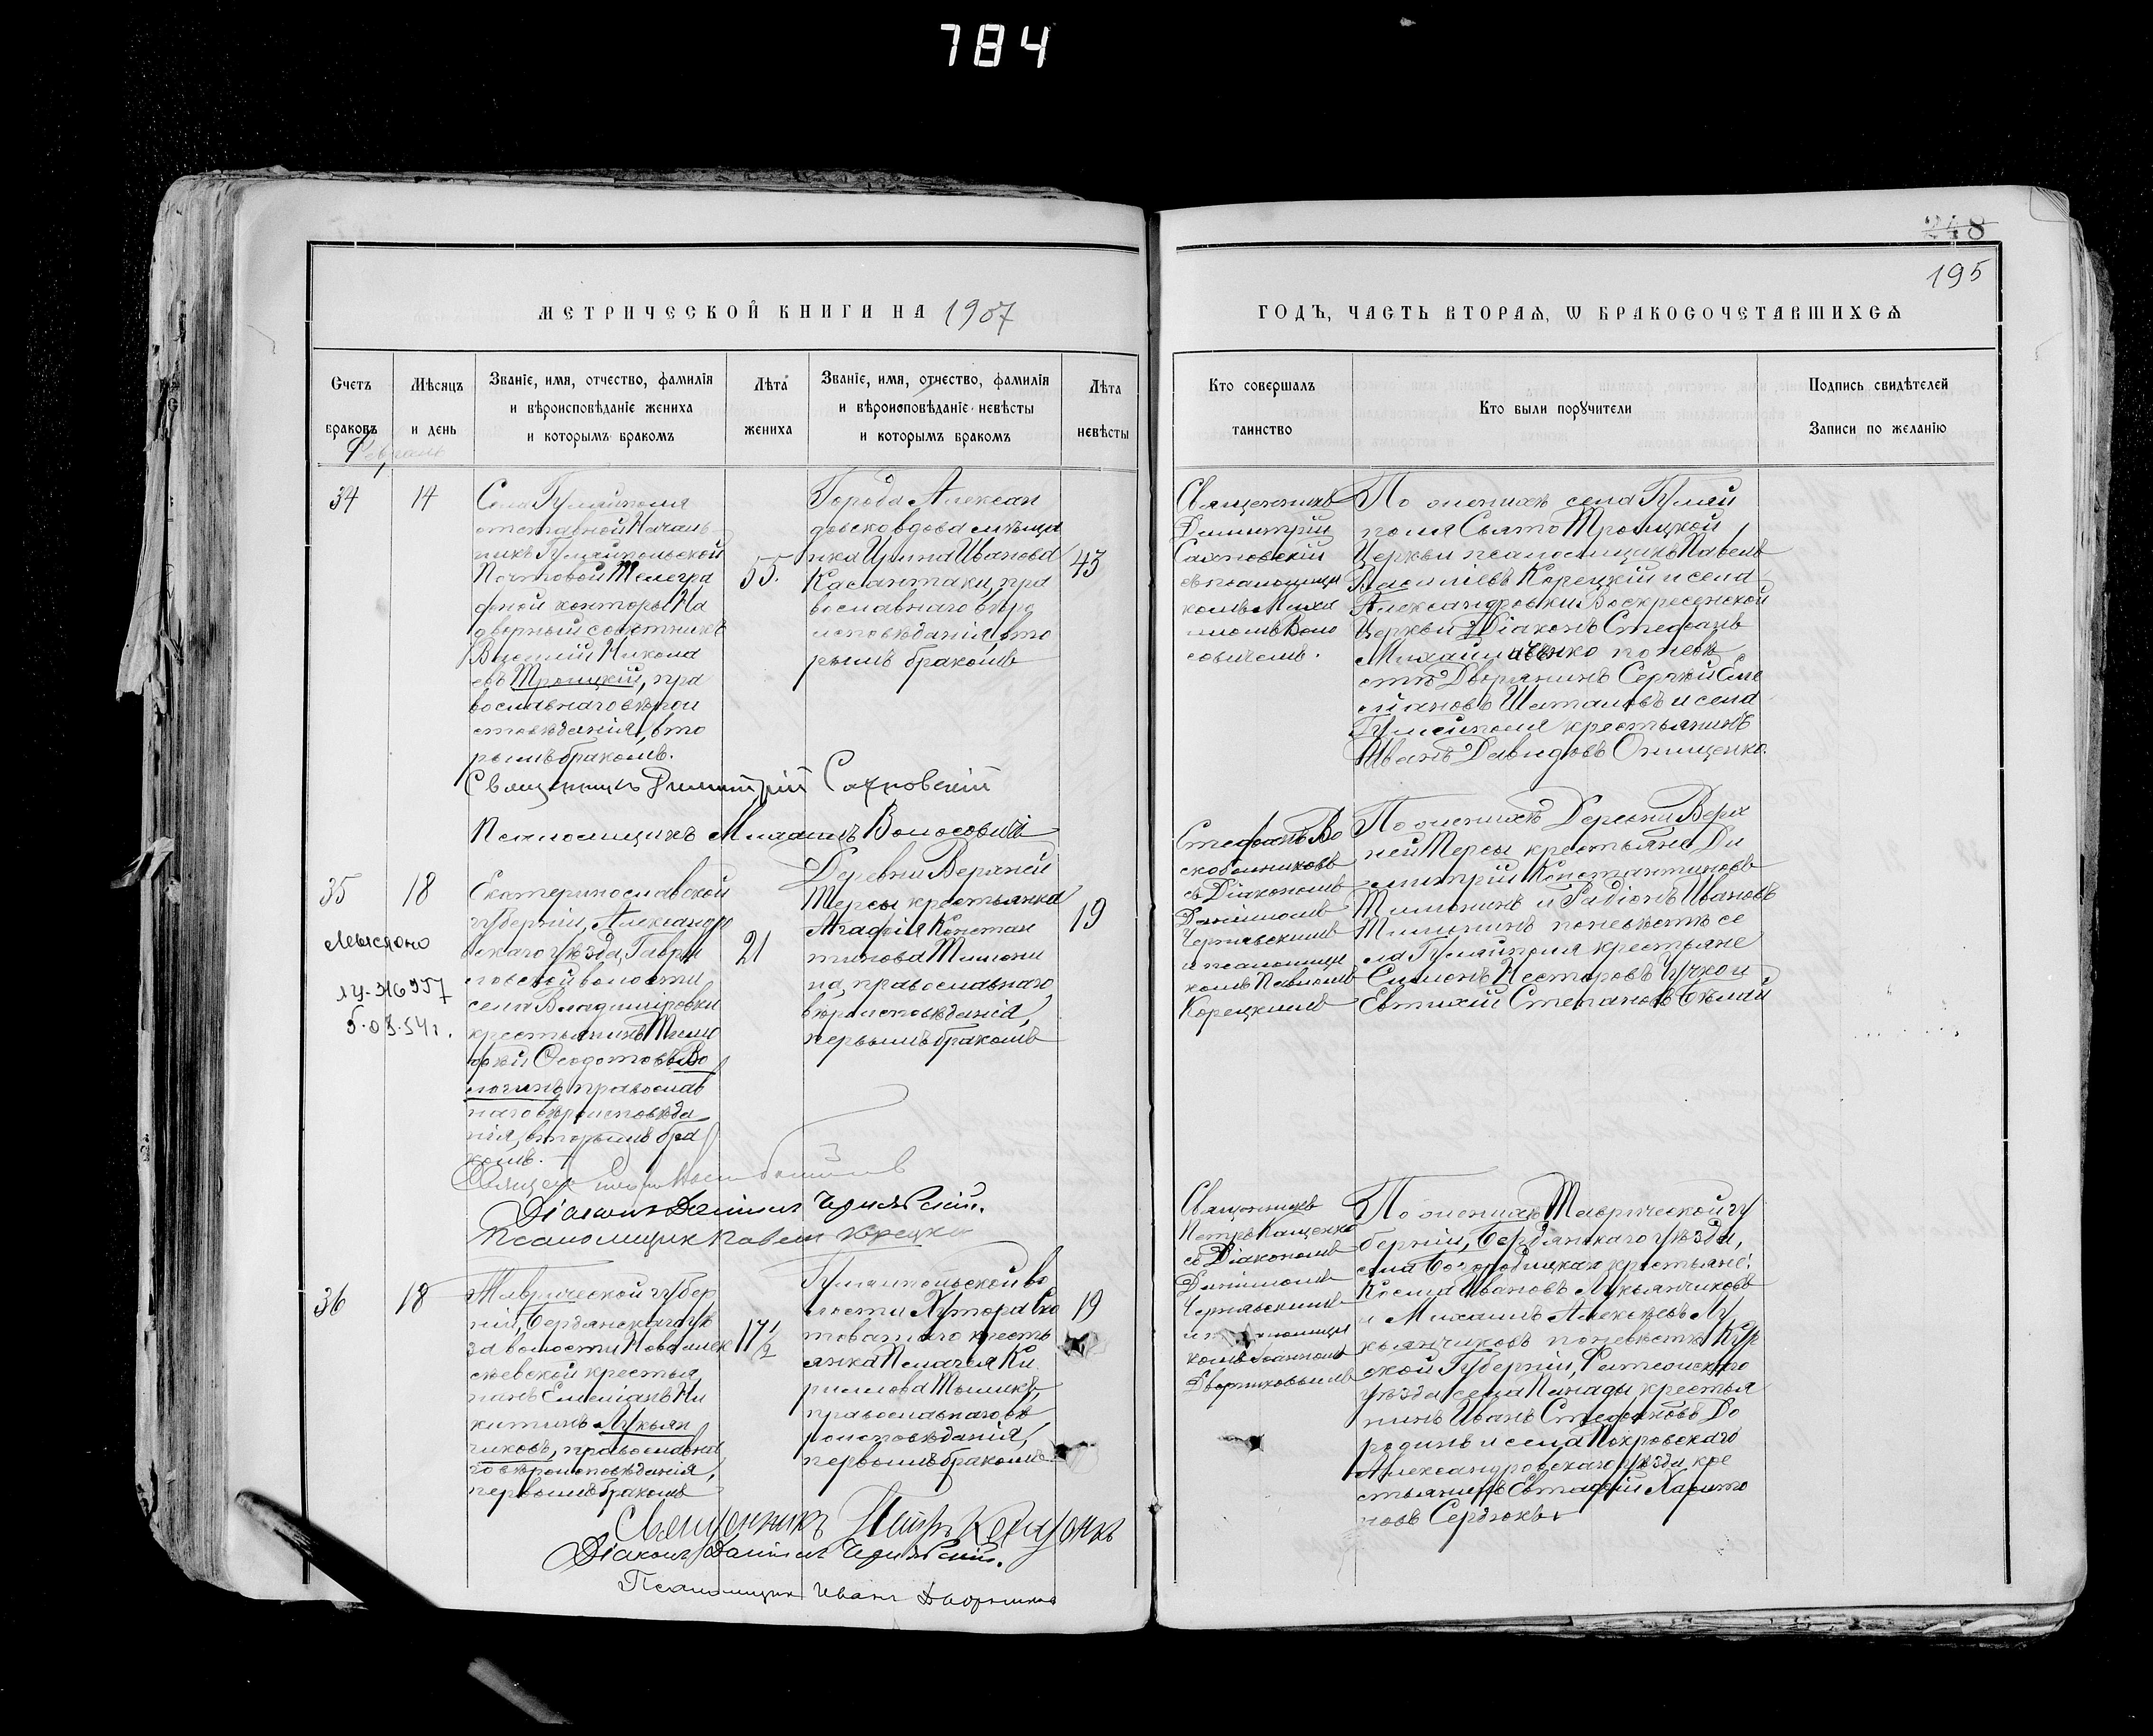 784
248
195
МЕТРИЧЕСКОЙ КНИГИ НА 1907
ГОДЪ, ЧАСТЬ ВТОРАѦ, Ѡ БРАКОСОЧЕТАВШИХСѦ
Счетъ
браковъ
Мѣсяцъ
и день
Званіе, имя, отчество, фамилія
и вѣроисповѣданіе жениха
и которымъ бракомъ
Лѣта
жениха
Званіе, имя, отчество, фамилія
и вѣроисповѣданіе невѣсты
и которымъ бракомъ
Лѣта
невѣсты
Кто совершалъ
таинство
Кто были порꙋчители
Подпись свидѣтелей
Записи по желанію
Февраль
34
14
Села Гуляйполя
отставной Началь
никъ Гуляйпольской
Почтовой Телегра
фной конторы На
дворный совѣтникъ
Василій Никола
евъ Троицкій, пра
вославнаго вѣрои
сповѣданія, вто
рымъ бракомъ.
55.
Города Алексан
дровска вдова мѣща
нка Ирина Иванова
пра
вославнаго вѣро
исповѣданія, вто
рымъ бракомъ
43
Священникъ
Димитрій
Сахновскій
съ псаломщи
комъ Миха
иломъ Воло
совичемъ.
По женихѣ села Гуляй
поля Свято Троицкой
Церкви псаломщикъ Павелъ
Васильевъ Корецкій и села
Александровки Воскресенской
Церкви Діаконъ Стефанъ
Михайличенко по невѣ
стѣ Дворянинъ Сергѣй Еме
ліановъ Шаталовъ и села
Гуляйполя крестьянинъ
Иванъ Давидовъ Онищенко.
Священникъ Димитрій Сахновскій
Псаломщикъ Михаилъ Волосовичъ
35
18
ЛУ-316957
5.03.54г.
Екатеринославской
губерніи, Александро
вскаго уѣзда, Гаври
ловской волости
села Владиміровки
крестьянинъ Тимо
фѣй Ѳеодотовъ Во
лочинъ, православ
наго вѣроисповѣда
нія, вторымъ бра
комъ.
21
Деревни Верхней
Терсы крестьянка
Агафія Констан
тинова Тимони
на, православнаго
вѣроисповѣданія,
первымъ бракомъ
19
Стефанъ Во
скобойниковъ
съ Діакономъ
Даніиломъ
Чернявскимъ
и псаломщи
комъ Павломъ
Корецкимъ
По женихѣ Деревни Верх
ней Терсы крестьяне Ди
митрій Константиновъ
Тимонинъ и Радіонъ Ивановъ
Тимонинъ по невѣстѣ се
ла Гуляйполя крестьяне
Симонъ Несторовъ Чучко и
Евтихій Степановъ Бѣлай
Діаконъ Даніилъ Чернявскій.
Псаломщикъ Павелъ Корецкій
36
18
Таврической губер
ніи, Бердянскаго уѣ
зда волости Новоалек
сѣевской крестья
нинъ Емеліанъ Ни
китинъ Лукьян
чиковъ, православна
го вѣроисповѣданія,
первымъ бракомъ
17½
Гуляйпольской во
лости Хутора Ско
товатаго кресть
янка Пелагея Ки
рилова
православнаго вѣ
роисповѣданія,
первымъ бракомъ
19
Священникъ
Петръ Кащенко
съ Діакономъ
Даніиломъ
Чернявскимъ
и псаломщи
комъ Іоанномъ
Дворниковымъ
По женихѣ Таврической гу
берніи, Бердянскаго уѣзда,
села Богородицкаго крестьяне:
Косма Ивановъ Лукьянчиковъ
и Михаилъ Алексѣевъ Лу
кьянчиковъ по невѣстѣ Кур
ской Губерніи, Фатежскаго
уѣзда села крестья
нинъ Иванъ Стефановъ До
родинъ и села Покровскаго
Александровскаго уѣзда кре
стьянинъ Евтафій Харито
новъ Сердюкъ
Священникъ Петръ Кащенко
Діаконъ Даніилъ Чернявскій.
Псаломщикъ Иванъ Дворниковъ